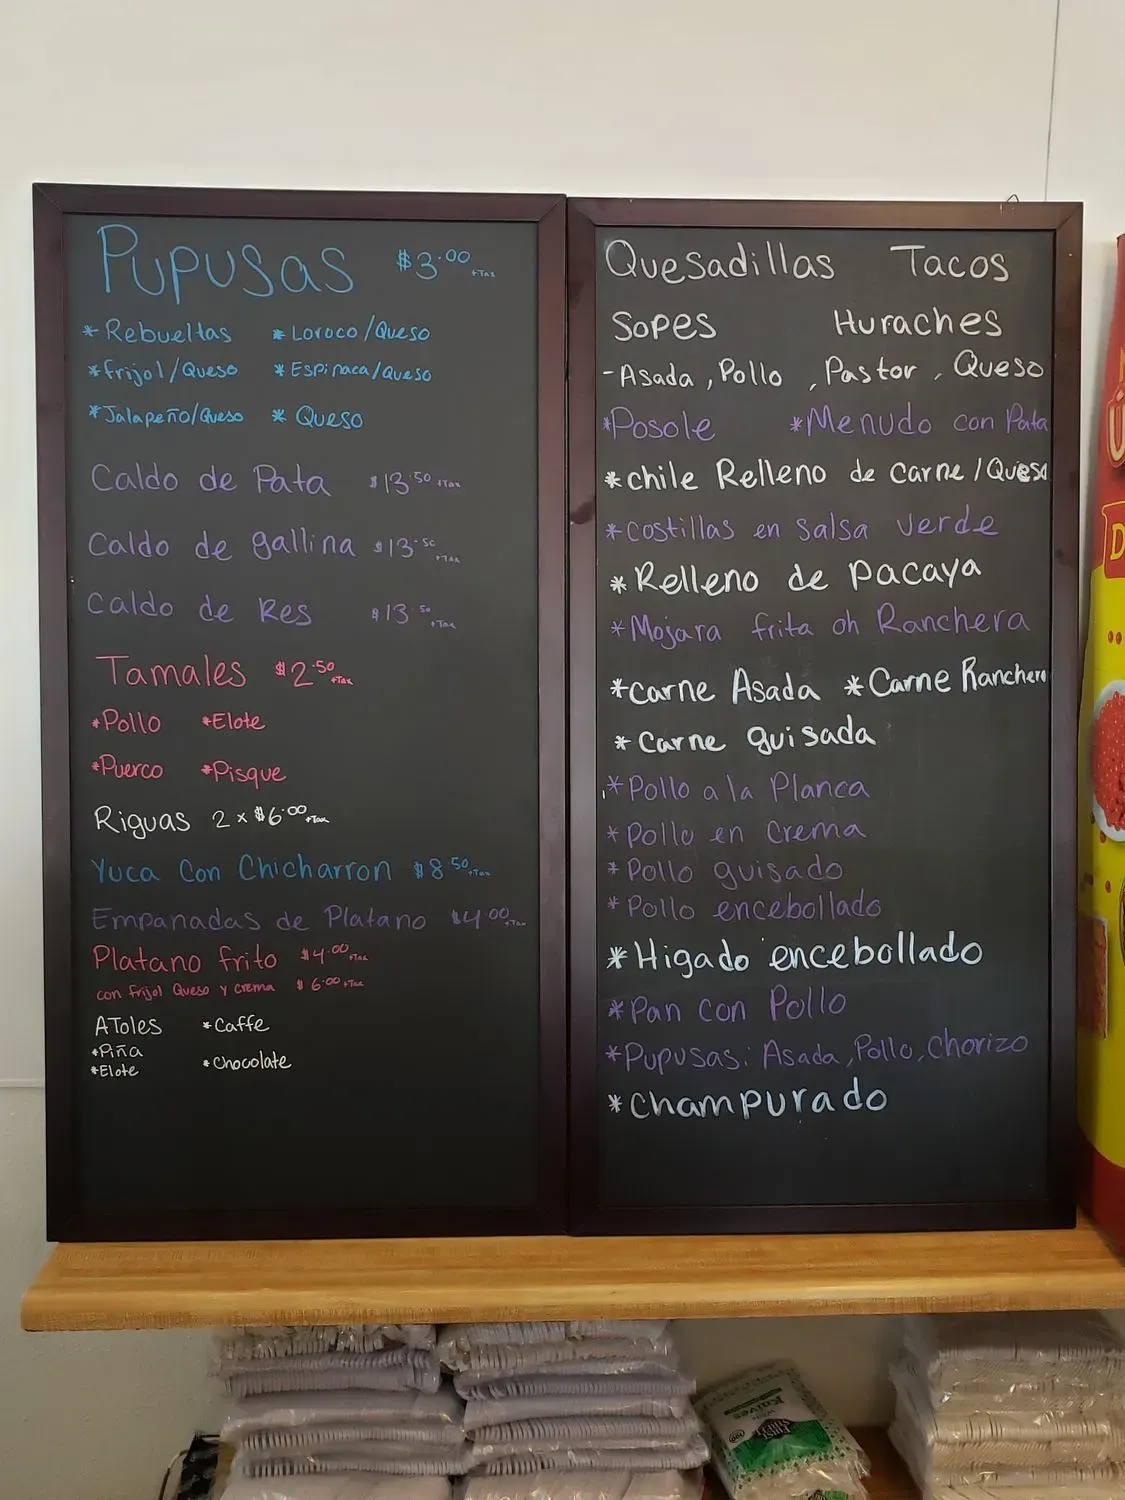 Pupusas $3.00 +Tax
*Rebueltas *Loroco/Queso
*frijol/Queso *Espinaca/Queso
*Jalapeño/Queso * Queso
Caldo de Pata $13.50 +Tax
Caldo de gallina $13.50 +Tax
Caldo de Res $13.50 +Tax
Tamales $2.50 +Tax
*Pollo *Elote
*Puerco *Pisque
Riguas 2 x $6.00 +Tax
Yuca Con Chicharron $8.50 +Tax
Empanadas de Platano $4.00 +Tax
Platano frito $4.00 +Tax
con frijol Queso y crema $6.00 +Tax
AToles *Caffe
*Piña
*Chocolate
*Elote
Quesadillas Tacos
Sopes Huraches
-Asada, Pollo, Pastor, Queso
*Posole *Menudo con Pata
*chile Relleno de carne/Queso
*costillas en salsa verde
*Relleno de pacaya
*Mojara frita oh Ranchera
*carne Asada *Carne Ranchera
*Carne guisada
*Pollo a la Planca
*Pollo en Crema
*Pollo guisado
*Pollo encebollado
*Higado encebollado
*Pan con Pollo
*Pupusas: Asada, Pollo, Chorizo
*champurado
D
Knives